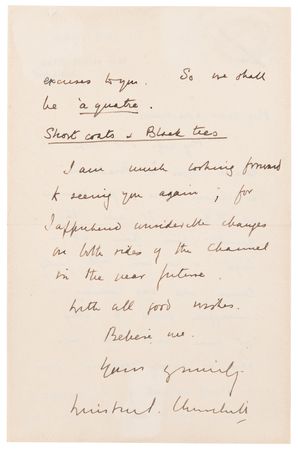 excuses to you. So we shall
be à quatre.
Short coats & Black ties
I am much looking forward
to seeing you again; for
I apprehend considerable changes
on both sides of the Channel
in the near future.
With all good wishes.
Believe me.
Yours sincerely.
Winston S. Churchill